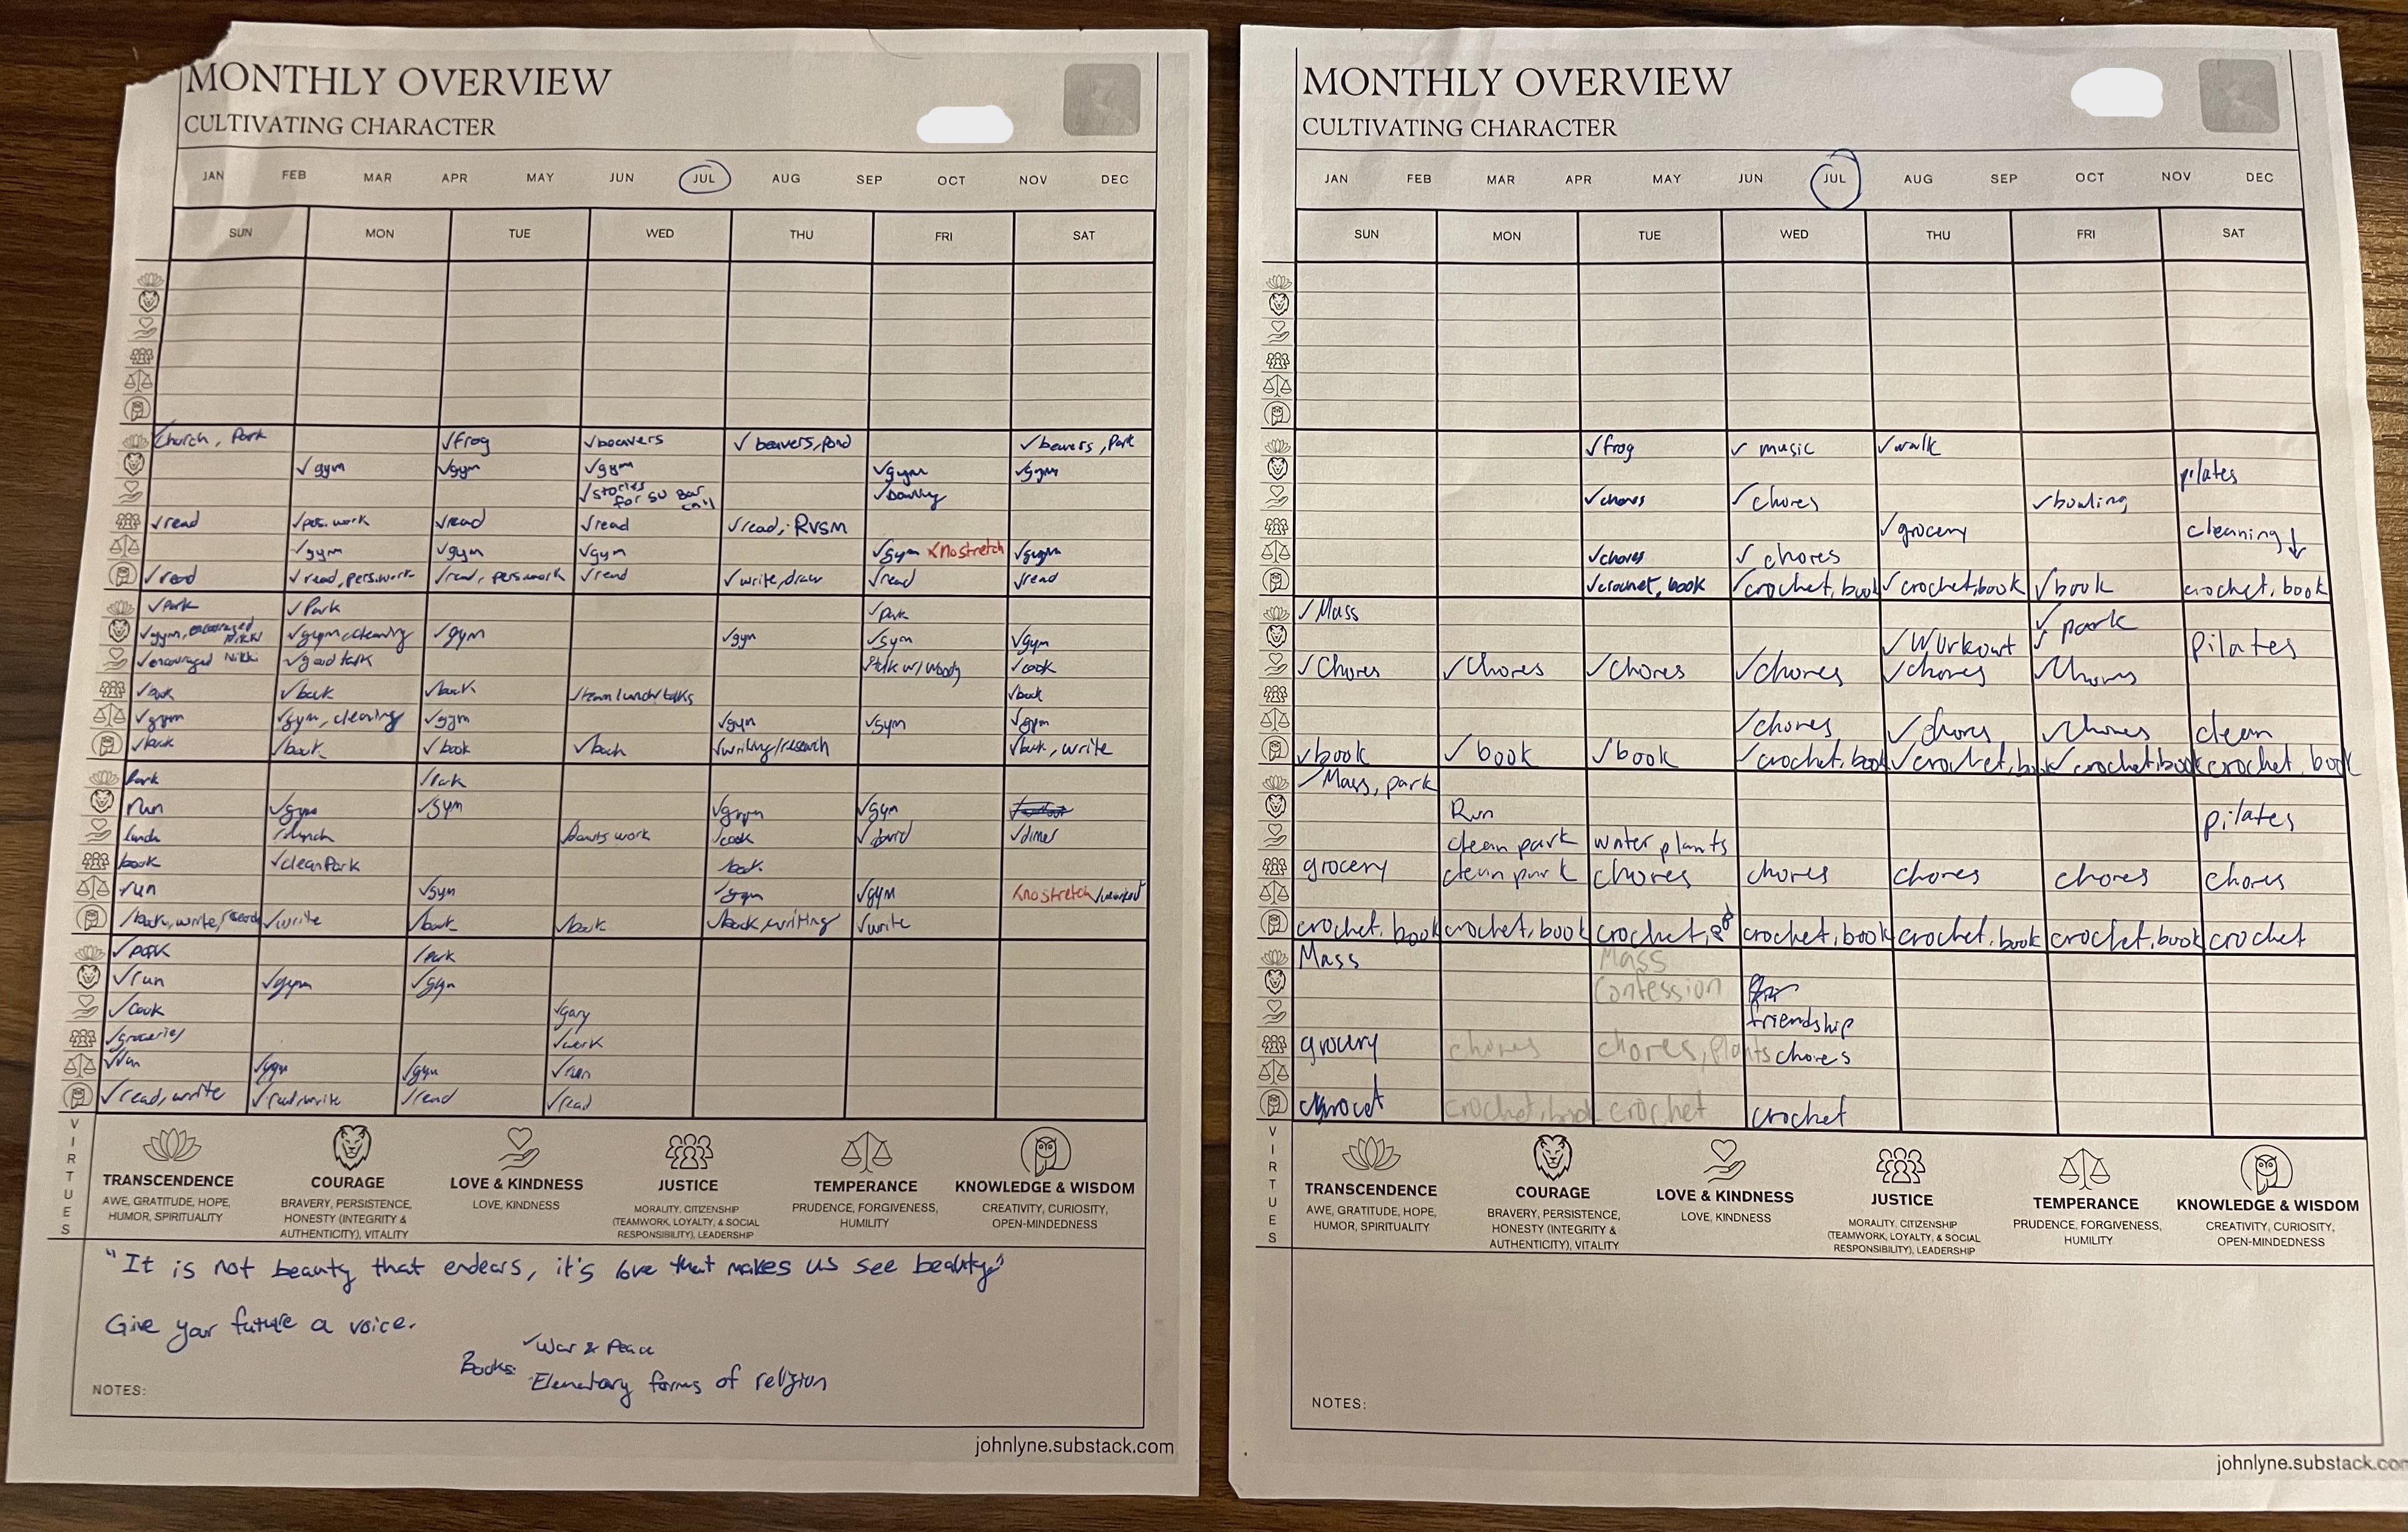 MONTHLY OVERVIEW
CULTIVATING CHARACTER
JAN FEB MAR APR MAY JUN JUL AUG SEP OCT NOV DEC
SUN MON TUE WED THU FRI SAT
Church, Park ✓frog ✓beavers ✓beavers, pond ✓beavers, Park
✓gym ✓gym ✓gym ✓gym ✓gym
✓stories
for SU Bar
✓bowling
✓read ✓pers. work ✓read ✓read ✓read, RVSM
✓gym ✓gym ✓gym ✓gym xno stretch ✓gym
✓read ✓read, pers.work ✓read, pers.work ✓read ✓write, draw ✓read ✓read
✓Park ✓Park ✓Park
✓gym, encouraged Nikki ✓gym, cleaning ✓gym ✓gym ✓gym ✓gym
✓encouraged Nikki ✓good talk ✓talk w/ Woody ✓cook
✓book ✓book ✓book ✓team lunch/talks ✓book
✓gym ✓gym, cleaning ✓gym ✓gym ✓gym ✓gym
✓book ✓book ✓book ✓book ✓writing/research ✓book, write
Park ✓Park
run ✓gym ✓gym ✓gym ✓gym
lunch ✓lunch Donuts work ✓cook ✓david ✓diner
book ✓clean Park book
run ✓gym ✓gym ✓gym xno stretch/worked
✓book, write, ✓write ✓book ✓book ✓book, writing ✓write
✓park ✓Park
✓run ✓gym ✓gym
✓cook ✓gary
✓groceries ✓work
✓run ✓gym ✓gym ✓run
✓read, write ✓read, write ✓read ✓read
VIRTUES
TRANSCENDENCE COURAGE LOVE & KINDNESS JUSTICE TEMPERANCE KNOWLEDGE & WISDOM
AWE, GRATITUDE, HOPE,
HUMOR, SPIRITUALITY
BRAVERY, PERSISTENCE,
HONESTY (INTEGRITY &
AUTHENTICITY), VITALITY
LOVE, KINDNESS
MORALITY, CITIZENSHIP
(TEAMWORK, LOYALTY, & SOCIAL
RESPONSIBILITY), LEADERSHIP
PRUDENCE, FORGIVENESS,
HUMILITY
CREATIVITY, CURIOSITY,
OPEN-MINDEDNESS
"It is not beauty that endears, it's love that makes us see beauty"
Give your future a voice.
✓War & Peace
Books:
Elementary forms of religion
NOTES:
johnlyne.substack.com
MONTHLY OVERVIEW
CULTIVATING CHARACTER
JAN FEB MAR APR MAY JUN JUL AUG SEP OCT NOV DEC
SUN MON TUE WED THU FRI SAT
✓frog ✓music ✓walk
pilates
✓chores ✓chores ✓bowling
✓grocery cleaning ↓
✓chores ✓chores
✓crochet, book ✓crochet, book ✓crochet, book ✓book crochet, book
✓Mass
✓Workout ✓park pilates
✓Chores ✓Chores ✓Chores ✓chores ✓chores ✓Chores
✓chores ✓chores ✓Chores clean
✓book ✓book ✓book ✓crochet, book ✓crochet, book ✓crochet, book crochet, book
✓Mass, park
Run pilates
clean park water plants
grocery clean park chores chores chores chores chores
crochet, book crochet, book crochet, crochet, book crochet, book crochet, book crochet
Mass Mass
Confession
friendship
grocery chores chores, plants chores
crochet, book crochet crochet
VIRTUES
TRANSCENDENCE COURAGE LOVE & KINDNESS JUSTICE TEMPERANCE KNOWLEDGE & WISDOM
AWE, GRATITUDE, HOPE,
HUMOR, SPIRITUALITY
BRAVERY, PERSISTENCE,
HONESTY (INTEGRITY &
AUTHENTICITY), VITALITY
LOVE, KINDNESS
MORALITY, CITIZENSHIP
(TEAMWORK, LOYALTY, & SOCIAL
RESPONSIBILITY), LEADERSHIP
PRUDENCE, FORGIVENESS,
HUMILITY
CREATIVITY, CURIOSITY,
OPEN-MINDEDNESS
NOTES:
johnlyne.substack.com